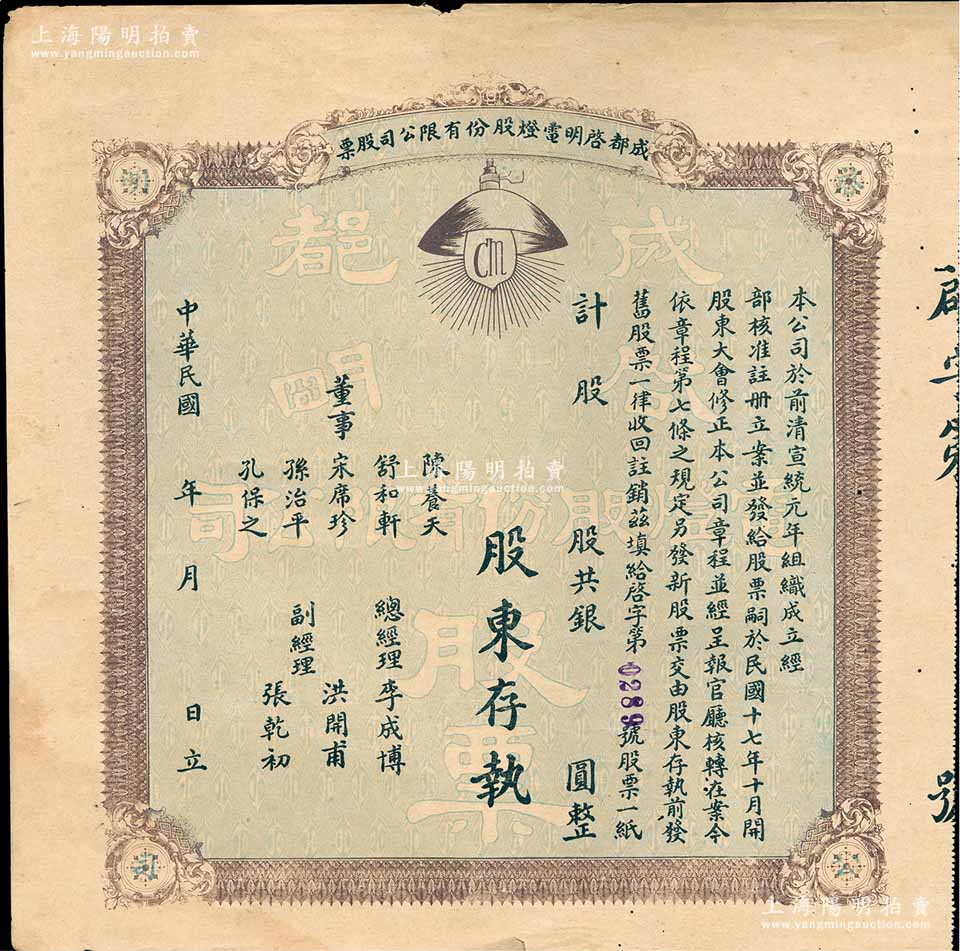 上海陽明拍賣
www.yangmingauction.com
成都啓明電燈股份有限公司股票
CM
本公司於前清宣統元年組織成立經
部核准註册立案並發給股票嗣於民國十七年十月開
股東大會修正本公司章程並經呈報官廳核轉在案今
依章程第七條之規定另發新股票交由股東存執前發
舊股票一律收回註銷茲填給啓字第0289號股票一紙
計股 股共銀 圓整
股東存執
董事
陳養天
舒和軒
宋席珍
孫治平
孔保之
總經理 李成博
副經理
洪開甫
張乾初
中華民國 年 月 日立
成都
啟明
電燈股份有限公司
股票
啓
明
公
司
號
上海陽明拍賣
www.yangmingauction.com
上海陽明拍賣
www.yangmingauction.com